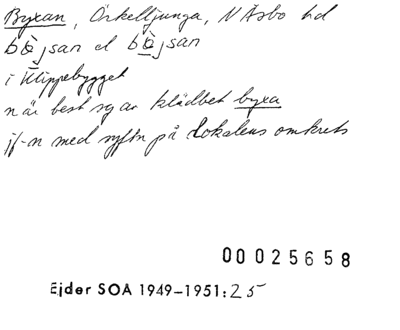 Byxan, Örkelljunga, N Åsbo hd
bὸ̀jsan el bò̱jsan
i Klippebygget
n är best sg av klädbet byxa
jf-n med syftn på lokalens omkrets
00025658
Ejder SOA 1949–1951:25